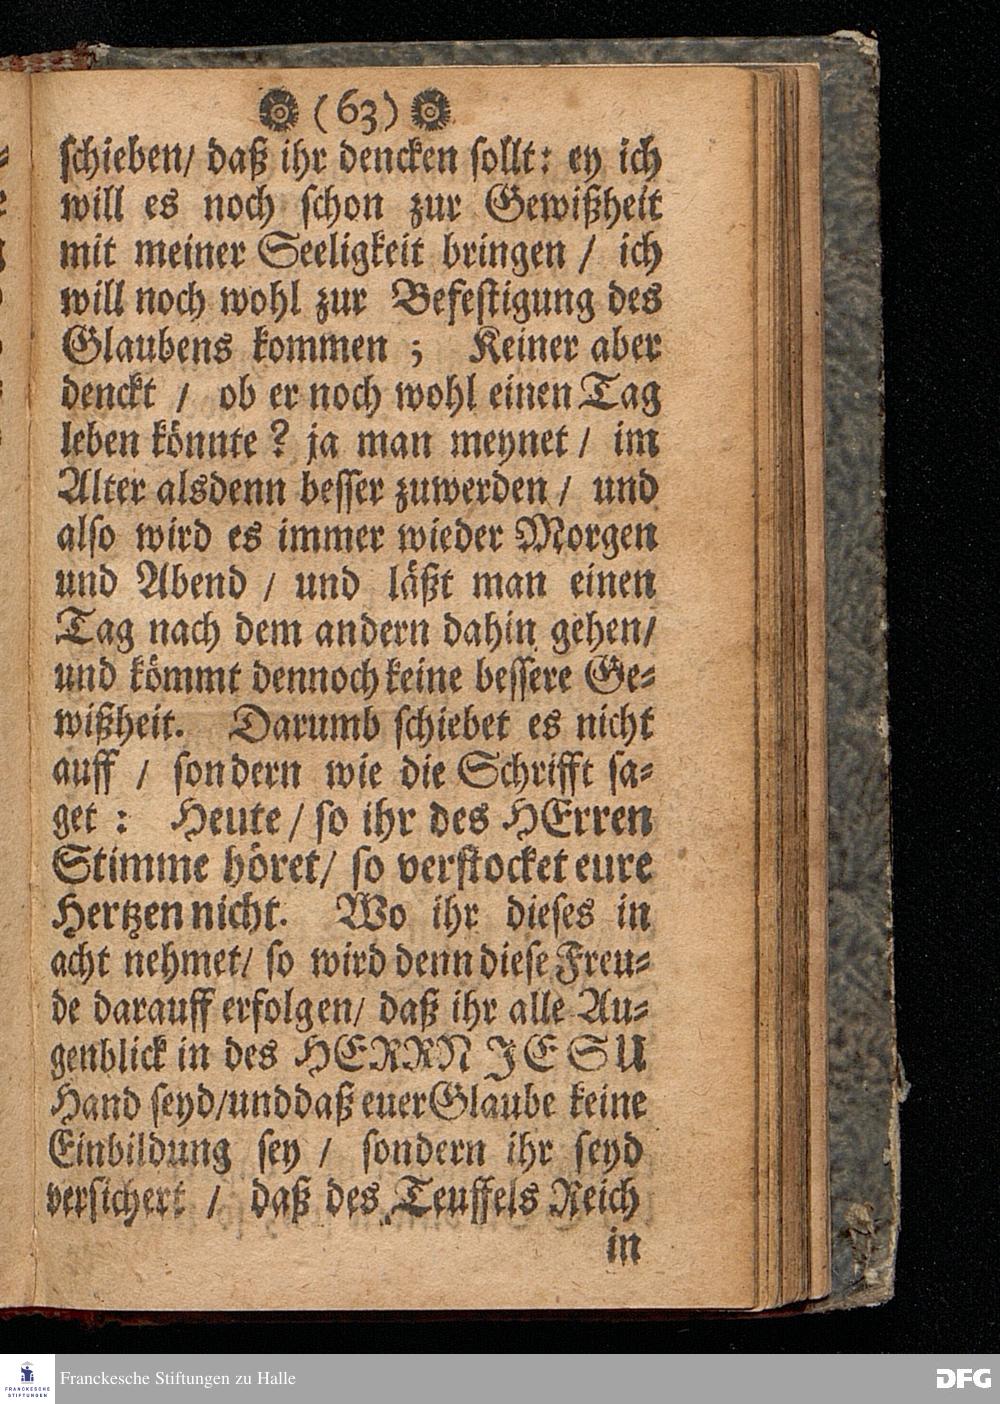 (63)
schieben/ daß ihr dencken sollt: ey ich
will es noch schon zur Gewißheit
mit meiner Seeligkeit bringen / ich
will noch wohl zur Befestigung des
Glaubens kommen ; Keiner aber
denckt / ob er noch wohl einen Tag
leben könnte ? ja man meynet / im
Alter alsdenn besser zuwerden / und
also wird es immer wieder Morgen
und Abend / und läßt man einen
Tag nach dem andern dahin gehen/
und kömmt dennoch keine bessere Ge-
wißheit. Darumb schiebet es nicht
auff / sondern wie die Schrifft sa-
get : Heute / so ihr des HErren
Stimme höret/ so verstocket eure
Hertzen nicht. Wo ihr dieses in
acht nehmet/ so wird denn diese Freu-
de darauff erfolgen/ daß ihr alle Au-
genblick in des HERRN JESU
Hand seyd/unddaß euer Glaube keine
Einbildung sey / sondern ihr seyd
versichert / daß des Teuffels Reich
in
FRANCKESCHE
STIFTUNGEN
Franckesche Stiftungen zu Halle
DFG